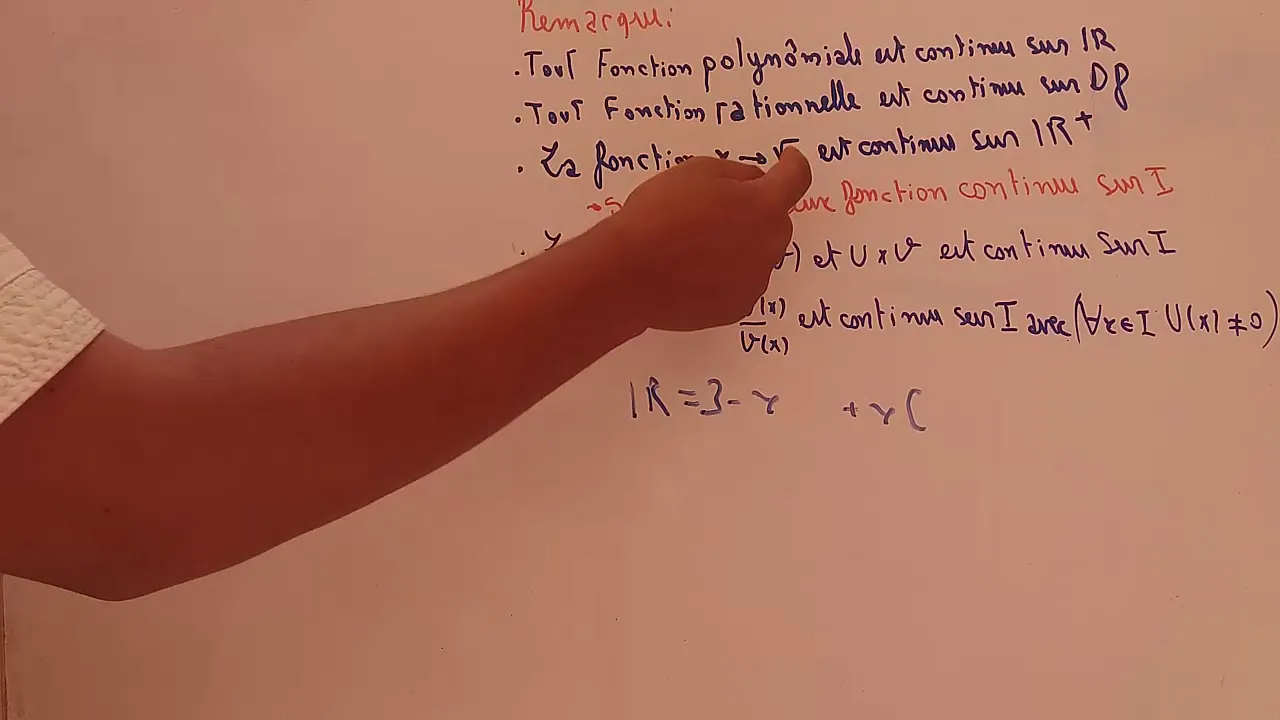 Remarque:
. Tout Fonction polynômiale est continue sur IR
. Tout Fonction rationnelle est continue sur Df
. La fonction x → √ est continue sur IR+
fonction continue sur I
) et U x V est continue sur I
(x) / V(x) est continue sur I avec (∀x ∈ I U(x) ≠ 0)
IR = ]-∞ +∞[